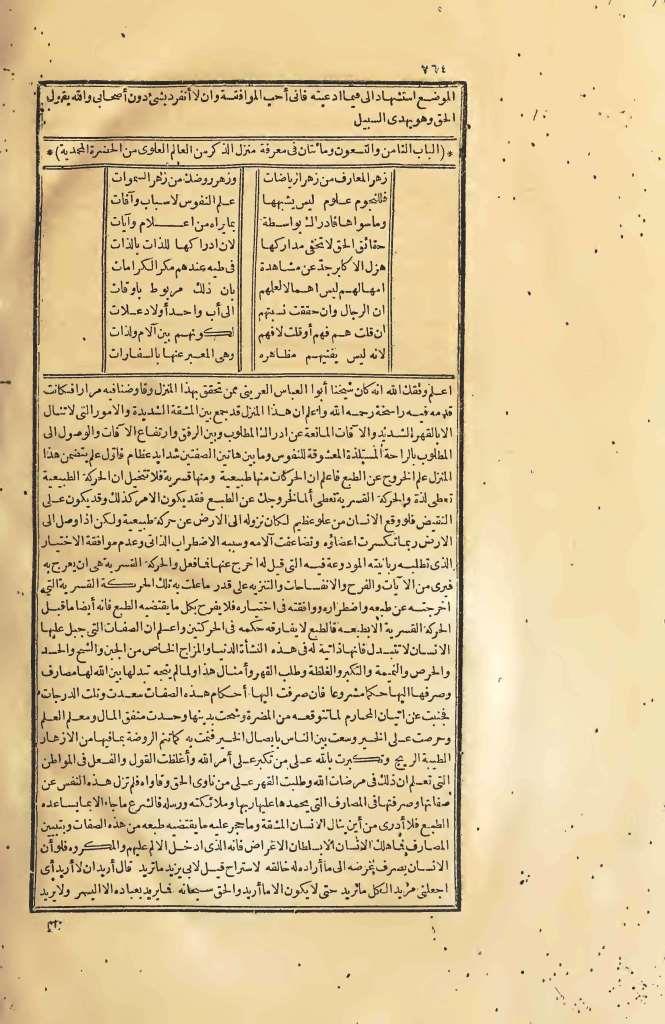 ٧٦٤
الموضع استشهاد الى فيما ادعيته فانى أحب الموافقة وان لا أنفرد بشئ دون أصحابى والله يقول
الحق وهو يهدى السبيل
* (الباب الثامن والتسعون ومائتان فى معرفة منزل الذكر من العالم العلوى من الحضرة المحمدية) *
زهر المعارف من زهر ازياضات وزهر روضك من زهر السموات
فللنجوم علوم ليس يشبهها علم النفوس لاسباب وآفات
وما سواها فادراك بواسطة بما يراه من اعلام وآيات
حقائق الحق لا تخفى مداركها لان ادراكها للذات بالذات
هزل الاكابر جدّ عن مشاهدة فى طيه عندهم مكر الكرامات
امهالهم ليس اهمالا لعلهم بان ذلك مربوط باوقات
ان الرجال وان حققت نسبتهم الى أب واحد أولاد علات
ان قلت هم فهم أو قلت لا فهم لكونهم بين آلام ولذات
لانه ليس يفنيهم مظاهره وهى المعبر عنها بالسفارات
اعلم وفقك الله انه كان شيخنا أبو العباس العرينى ممن تحقق بهذا المنزل وفاوضنا فيه مرارا فكانت
قدمه فيه راسخة رحمه الله واعلم ان هذا المنزل قد جمع بين المشقة الشديدة والامور التى لا تنال
الا بالقهر الشديد والآفات المانعة عن ادراك المطلوب وبين الرفق وارتفاع الآفات والوصول الى
المطلوب بالراحة المستلذة المعشوقة للنفوس وما بين هاتين الصفتين شدايد عظام فاوّل علم يتضمن هذا
المنزل علم الخروج عن الطبع فاعلم ان الحركات منها طبيعية ومنها قسرية فلا تتخيل ان الحركة الطبيعية
تعطى لذة والحركة القسرية تعطى ألما لخروجك عن الطبع فقد يكون الامر كذلك وقد يكون على
النقيض فلو وقع الانسان من علو عظيم لكان نزوله الى الارض عن حركة طبيعية ولكن اذا وصل الى
الارض ربما تكسرت اعضاؤه وتضاعفت آلامه وسببه الاضطراب الذاتى وعدم موافقة الاختيار
الذى تطلبه ربانيته المودعة فيه التى قيل له اخرج عنها فما فعل والحركة القسرية هى ان يعرج به
فيرى من الآيات والفرح والانفساحات والتنزيه على قدر ما علت به تلك الحركة القسرية التى
اخرجته عن طبعه واضطراره ووافقته فى اختياره فلا يفرح بكل ما يقتضيه الطبع فانه أيضا ما قبل
الحركة القسرية الا بطبعه فالطبع لا يفارقه حكمه فى الحركتين واعلم ان الصفات التى جبل عليها
الانسان لا تتبدل فانها ذاتية له فى هذه النشأة الدنيا والمزاج الخاص من الجبن والشح والحسد
والحرص والنميمة والتكبر والغلظة وطلب القهر وأمثال هذا ولما لم يتجه تبدلها بين الله لها مصارف
وصرفها اليها حكما مشروعا فان صرفت اليها أحكام هذه الصفات سعدت ونلت الدرجات
فجبنت عن اتيان المحارم لما تتوقعه من المضرة وشحت بدينها وحسدت منفق المال ومعلم العلم
وحرصت على الخير وسعت بين الناس بايصال الخير فنمت به كما تنم الروضة بما فيها من الازهار
الطيبة الريح وتكبرت بالله على من تكبر على أمر الله وأغلظت القول والفعل فى المواطن
التى تعلم ان ذلك فى مرضات الله وطلبت القهر على من ناوى الحق وقاواه فلم تزل هذه النفس عن
صفاتها وصرفتها فى المصارف التى يحمدها عليها ربها وملائكته ورسله فالشرع ما جاء الا بما يساعده
الطبع فلا أدرى من أين ينال الانسان المشقة وما حجر عليه ما يقتضيه طبعه من هذه الصفات وبتبيين
المصارف فما هلك الانسان الا بسلطان الاغراض فانه الذى ادخل الالم عليهم والمكروه فلو أن
الانسان يصرف غرضه الى ما أراده له خالقه لاستراح قيل لابى يزيد ما تريد قال أريد ان لا أريد أى
اجعلنى مريد الكل ما تريد حتى لا يكون الا ما أريد والحق سبحانه فما يريد بعباده الا اليسر ولا يريد